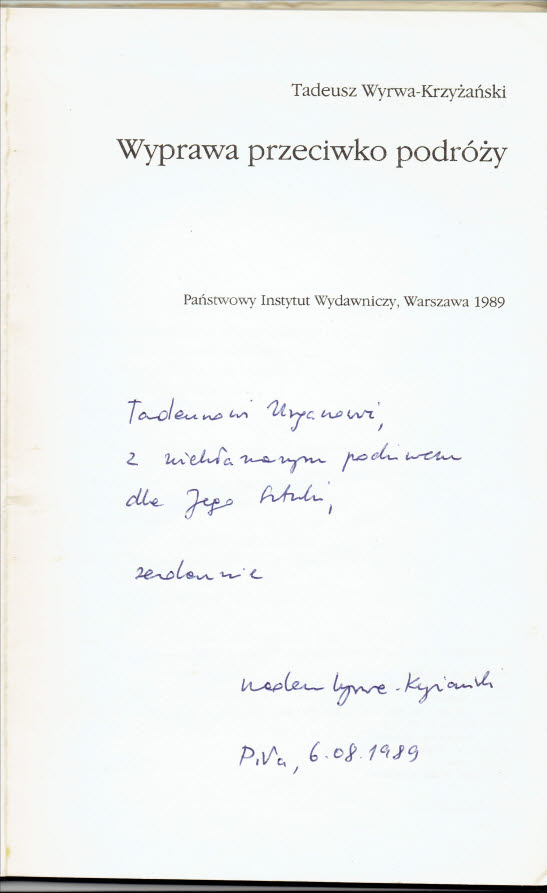 Tadeusz Wyrwa-Krzyżański
Wyprawa przeciwko podróży
Państwowy Instytut Wydawniczy, Warszawa 1989
Tadeuszowi
z niekłamanym podziwem
dla Jego Sztuki,
serdecznie
Wyrwa-Krzyżański
Piła, 6.08.1989